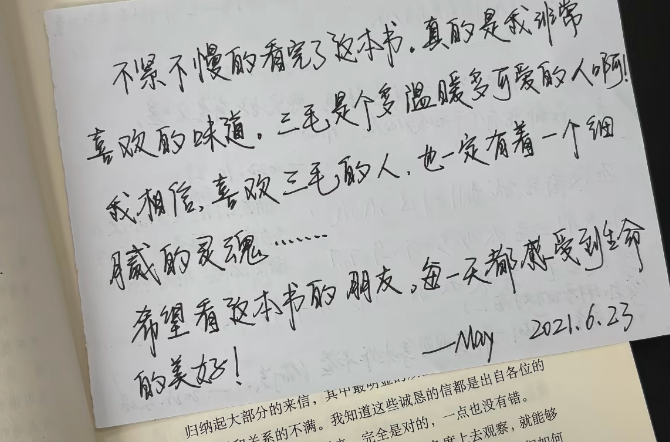 不紧不慢的看完了这本书。真的是我非常
喜欢的味道。三毛是个多温暖多可爱的人啊!
我相信,喜欢三毛的人,也一定有着一个细
腻的灵魂……
希望看这本书的朋友,每一天都感受到生命
的美好!
—May 2021.6.23
归纳起大部分的来信,其中最明显的
关系的不满。我知道这些诚恳的信都是出自各位的
完全是对的,一点也没有错。
度上去观察,就能够
如何